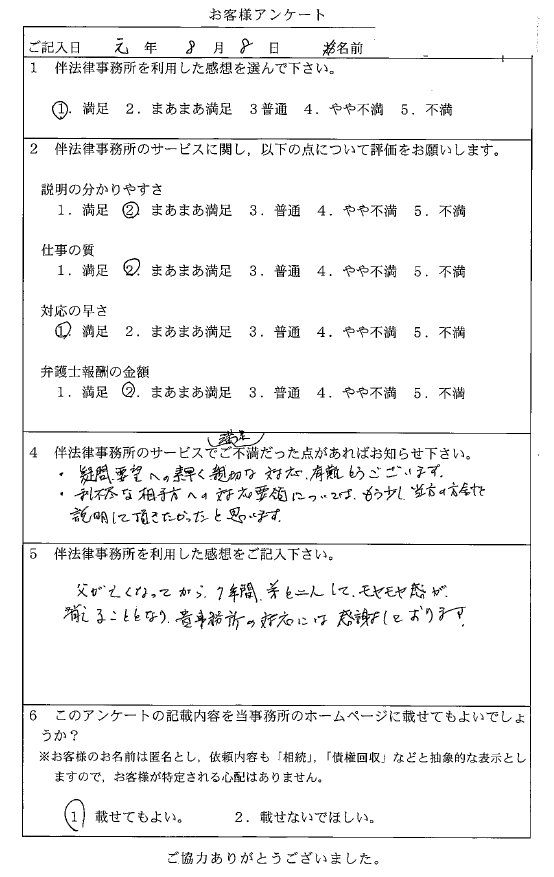 お客様アンケート
ご記入日 元年 8月 8日 お名前
1 伴法律事務所を利用した感想を選んで下さい。
①. 満足 2. まあまあ満足 3普通 4. やや不満 5. 不満
2 伴法律事務所のサービスに関し,以下の点について評価をお願いします。
説明の分かりやすさ
1. 満足 ②. まあまあ満足 3. 普通 4. やや不満 5. 不満
仕事の質
1. 満足 ②. まあまあ満足 3. 普通 4. やや不満 5. 不満
対応の早さ
①. 満足 2. まあまあ満足 3. 普通 4. やや不満 5. 不満
弁護士報酬の金額
1. 満足 ②. まあまあ満足 3. 普通 4. やや不満 5. 不満
満足
4 伴法律事務所のサービスでご不満だった点があればお知らせ下さい。
・疑問、要望への素早く親切な対応、有難うございます。
・な相手方への対応要領については、もう少し当方の
説明して頂きたかったと思います。
5 伴法律事務所を利用した感想をご記入下さい。
父が亡くなってから、7年間、弟と二人して、モヤモヤ感が
消えることとなり、貴事務所の対応には感謝しております!
6 このアンケートの記載内容を当事務所のホームページに載せてもよいでしょ
うか?
※お客様のお名前は匿名とし,依頼内容も「相続」,「債権回収」などと抽象的な表示とし
ますので,お客様が特定される心配はありません。
① 載せてもよい。 2. 載せないでほしい。
ご協力ありがとうございました。